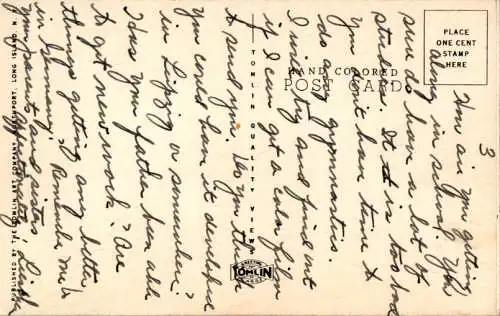 How are you getting
along in school. You
sure do have a lot of
studies. It is too bad
you don't have time to
do any gymnastics.
I will try and find out
if I can get a color film
to send you. Do you think
you could have it developed
in Leipzig or somewhere?
Has your father been able
to get new work? Are
things getting any better
in Germany? Remember me to
your parents and sisters.
3
PLACE
ONE CENT
STAMP
HERE
HAND COLORED
POST CARD
TOMLIN QUALITY VIEWS
TOMLIN
PUBLISHED BY THE TOMLIN ART COMPANY, NORTHPORT, LONG ISLAND, N.